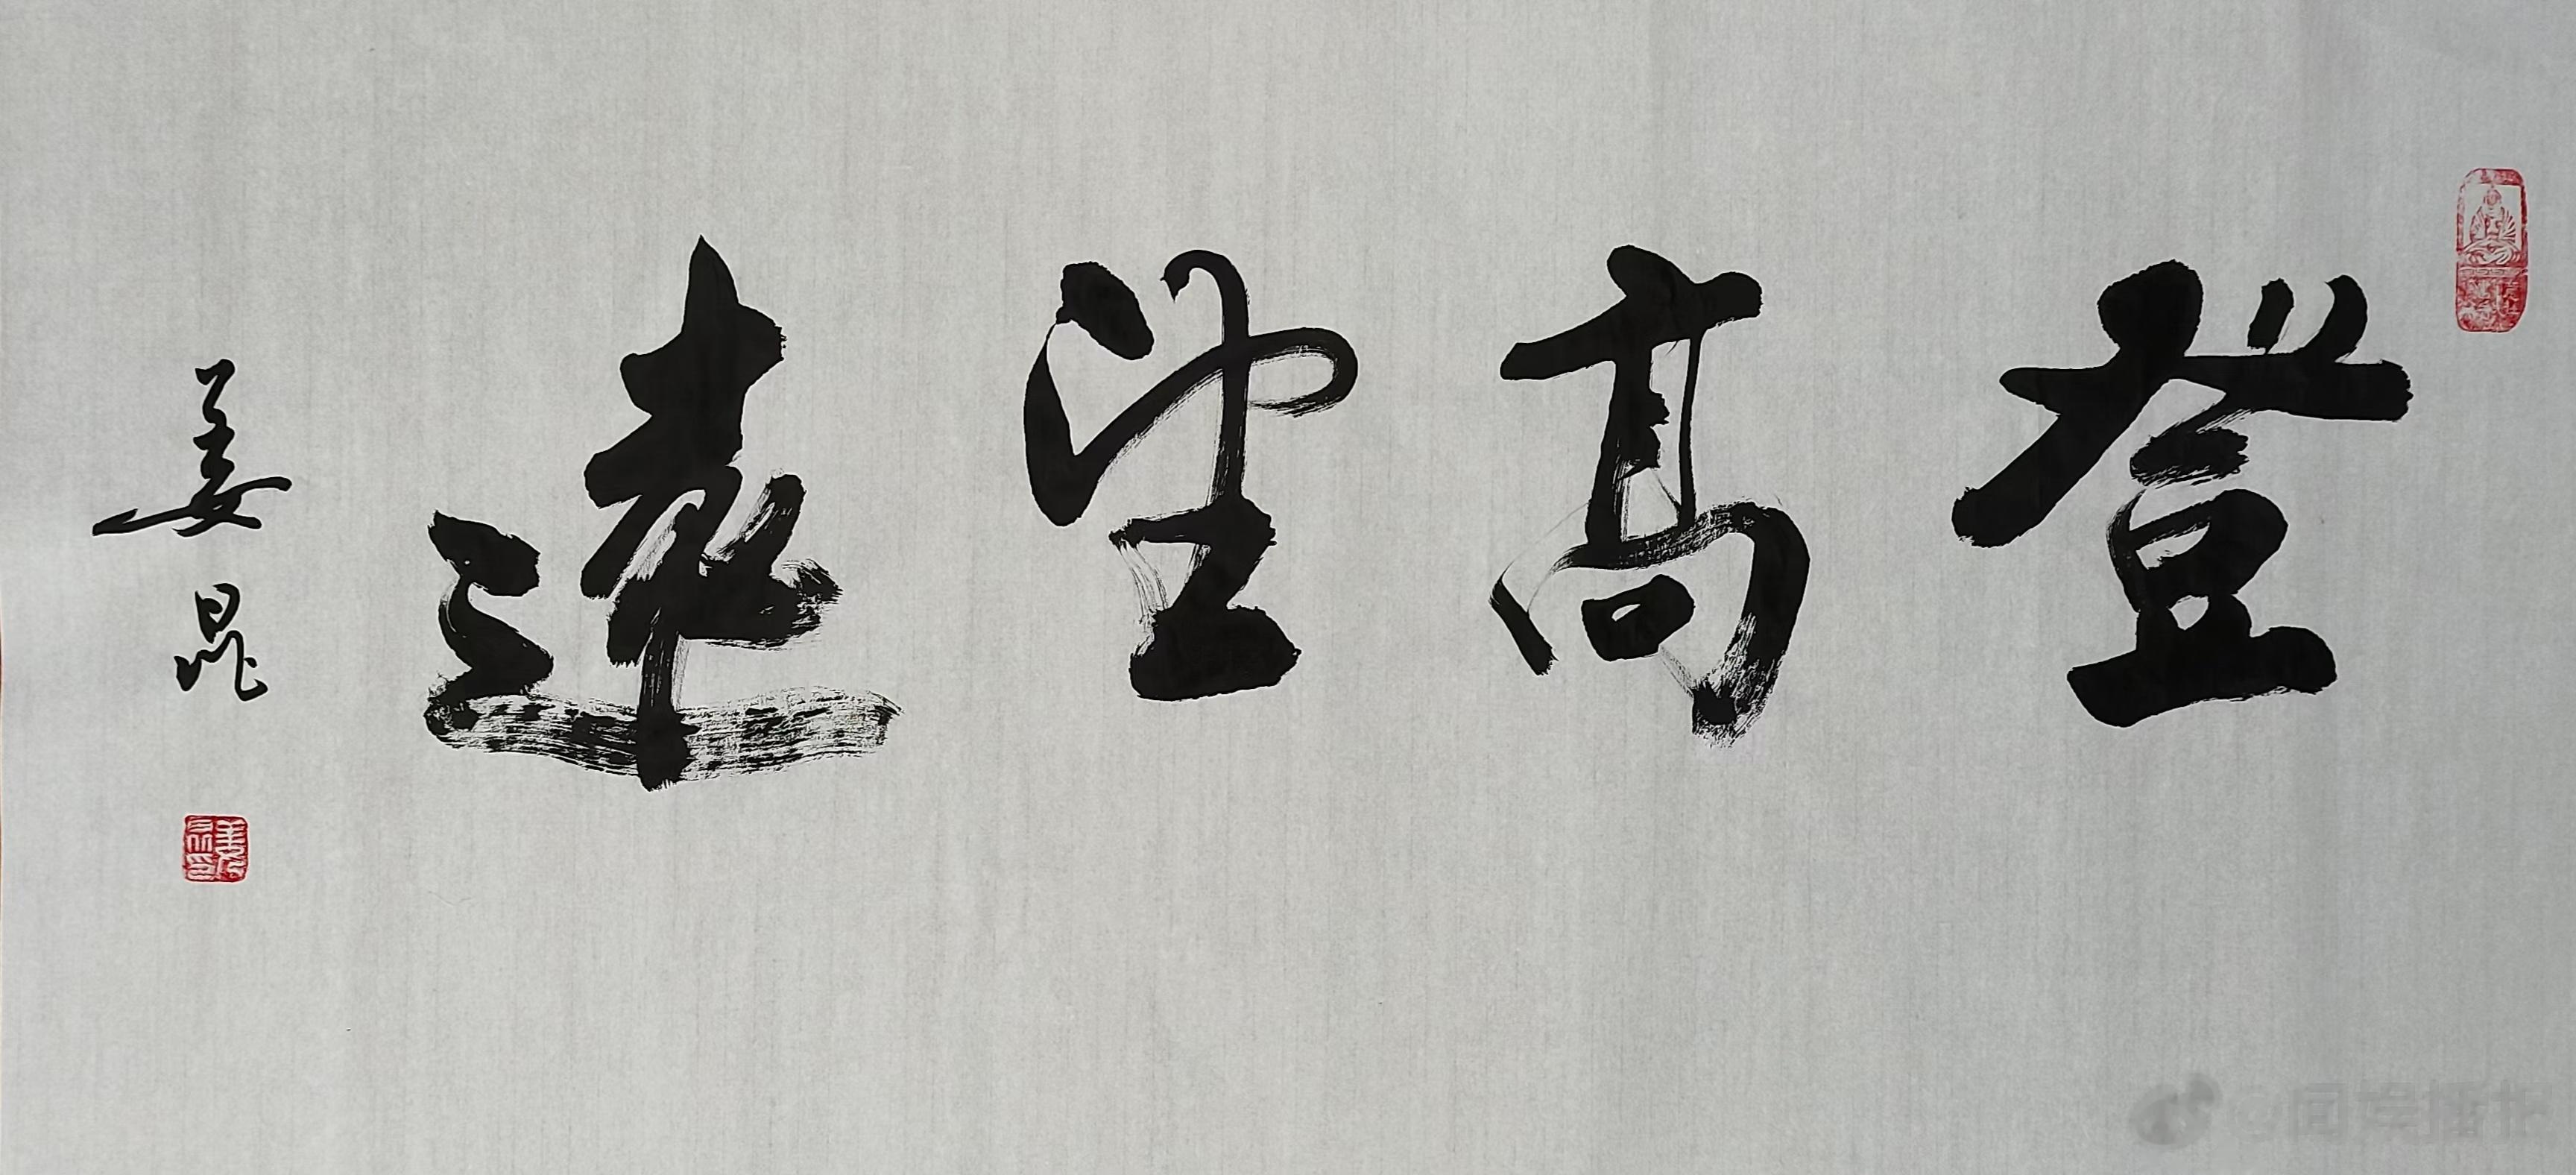 登高望遠
姜晁